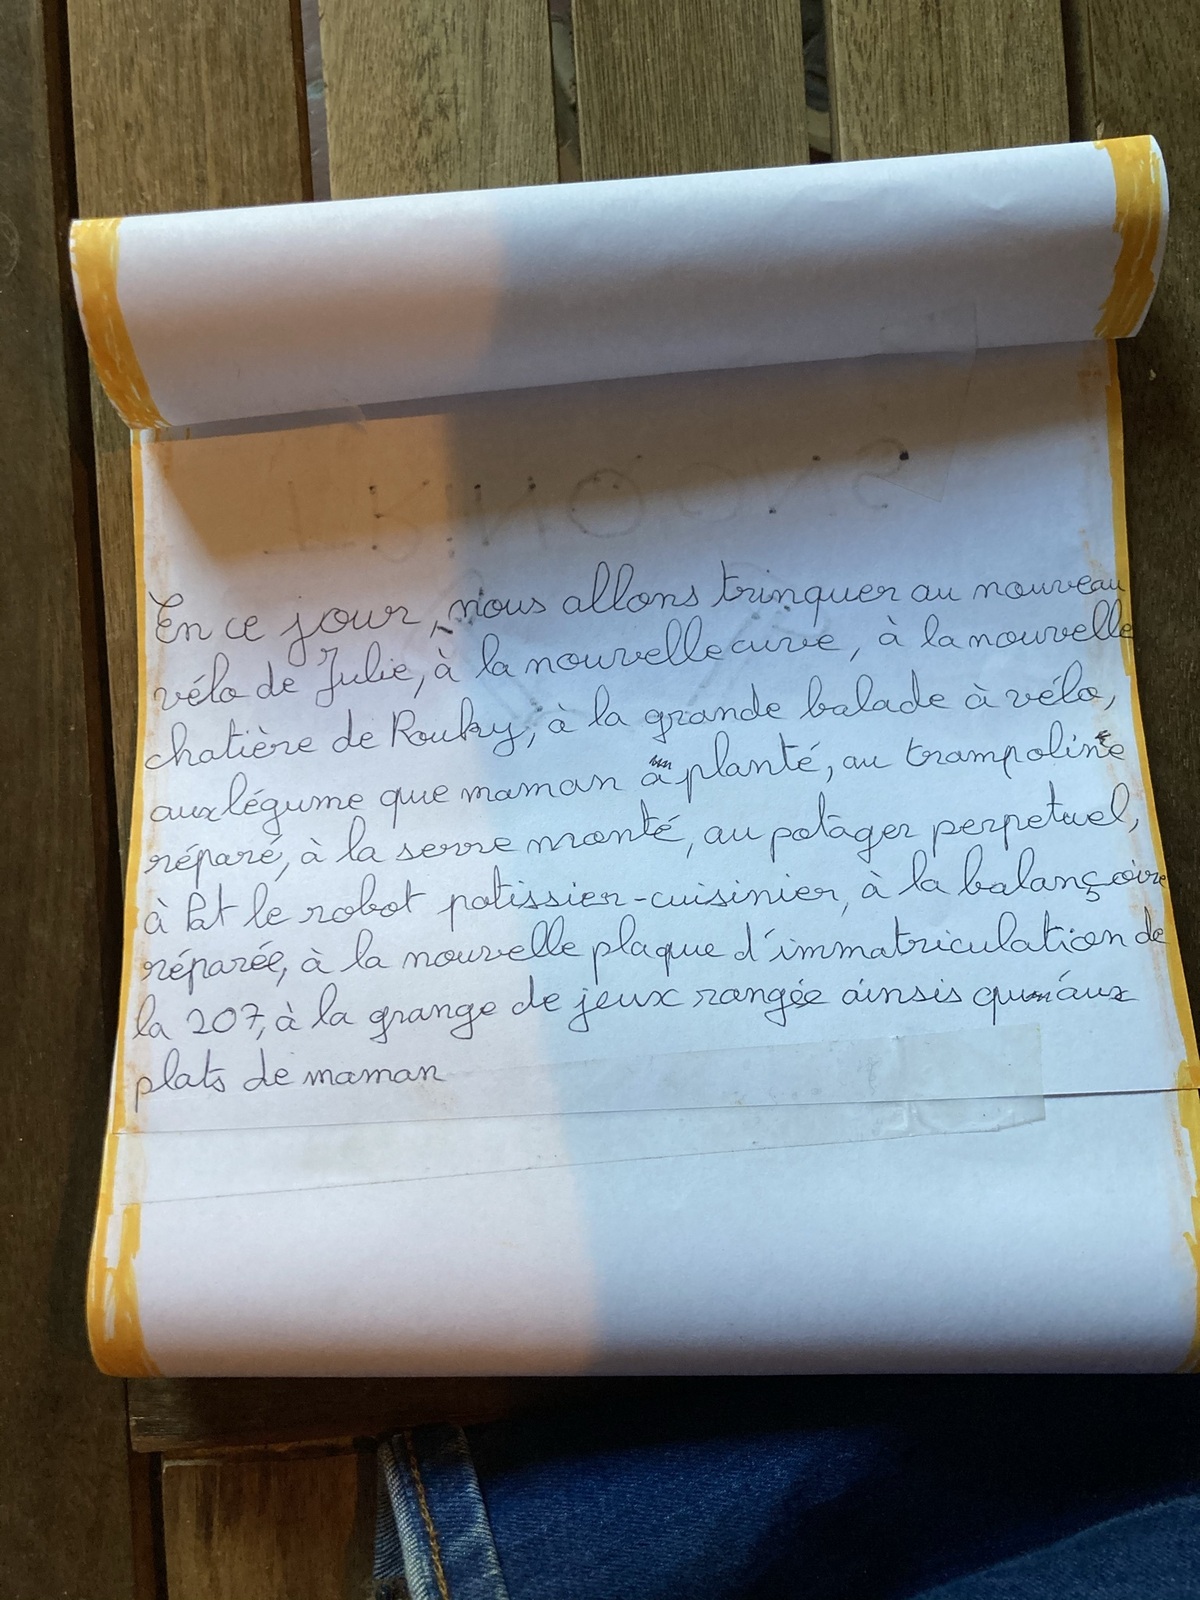 En ce jour, nous allons trinquer au nouveau
vélo de Julie, à la nouvelle cuve, à la nouvelle
chatière de Rouky, à la grande balade à vélo,
aux légume que maman à planté, au trampoline
réparé, à la serre monté, au potager perpetuel,
à Pat le robot patissier-cuisinier, à la balançoire
réparée, à la nouvelle plaque d'immatriculation de
la 207, à la grange de jeux rangée ainsis qu'aux
plats de maman